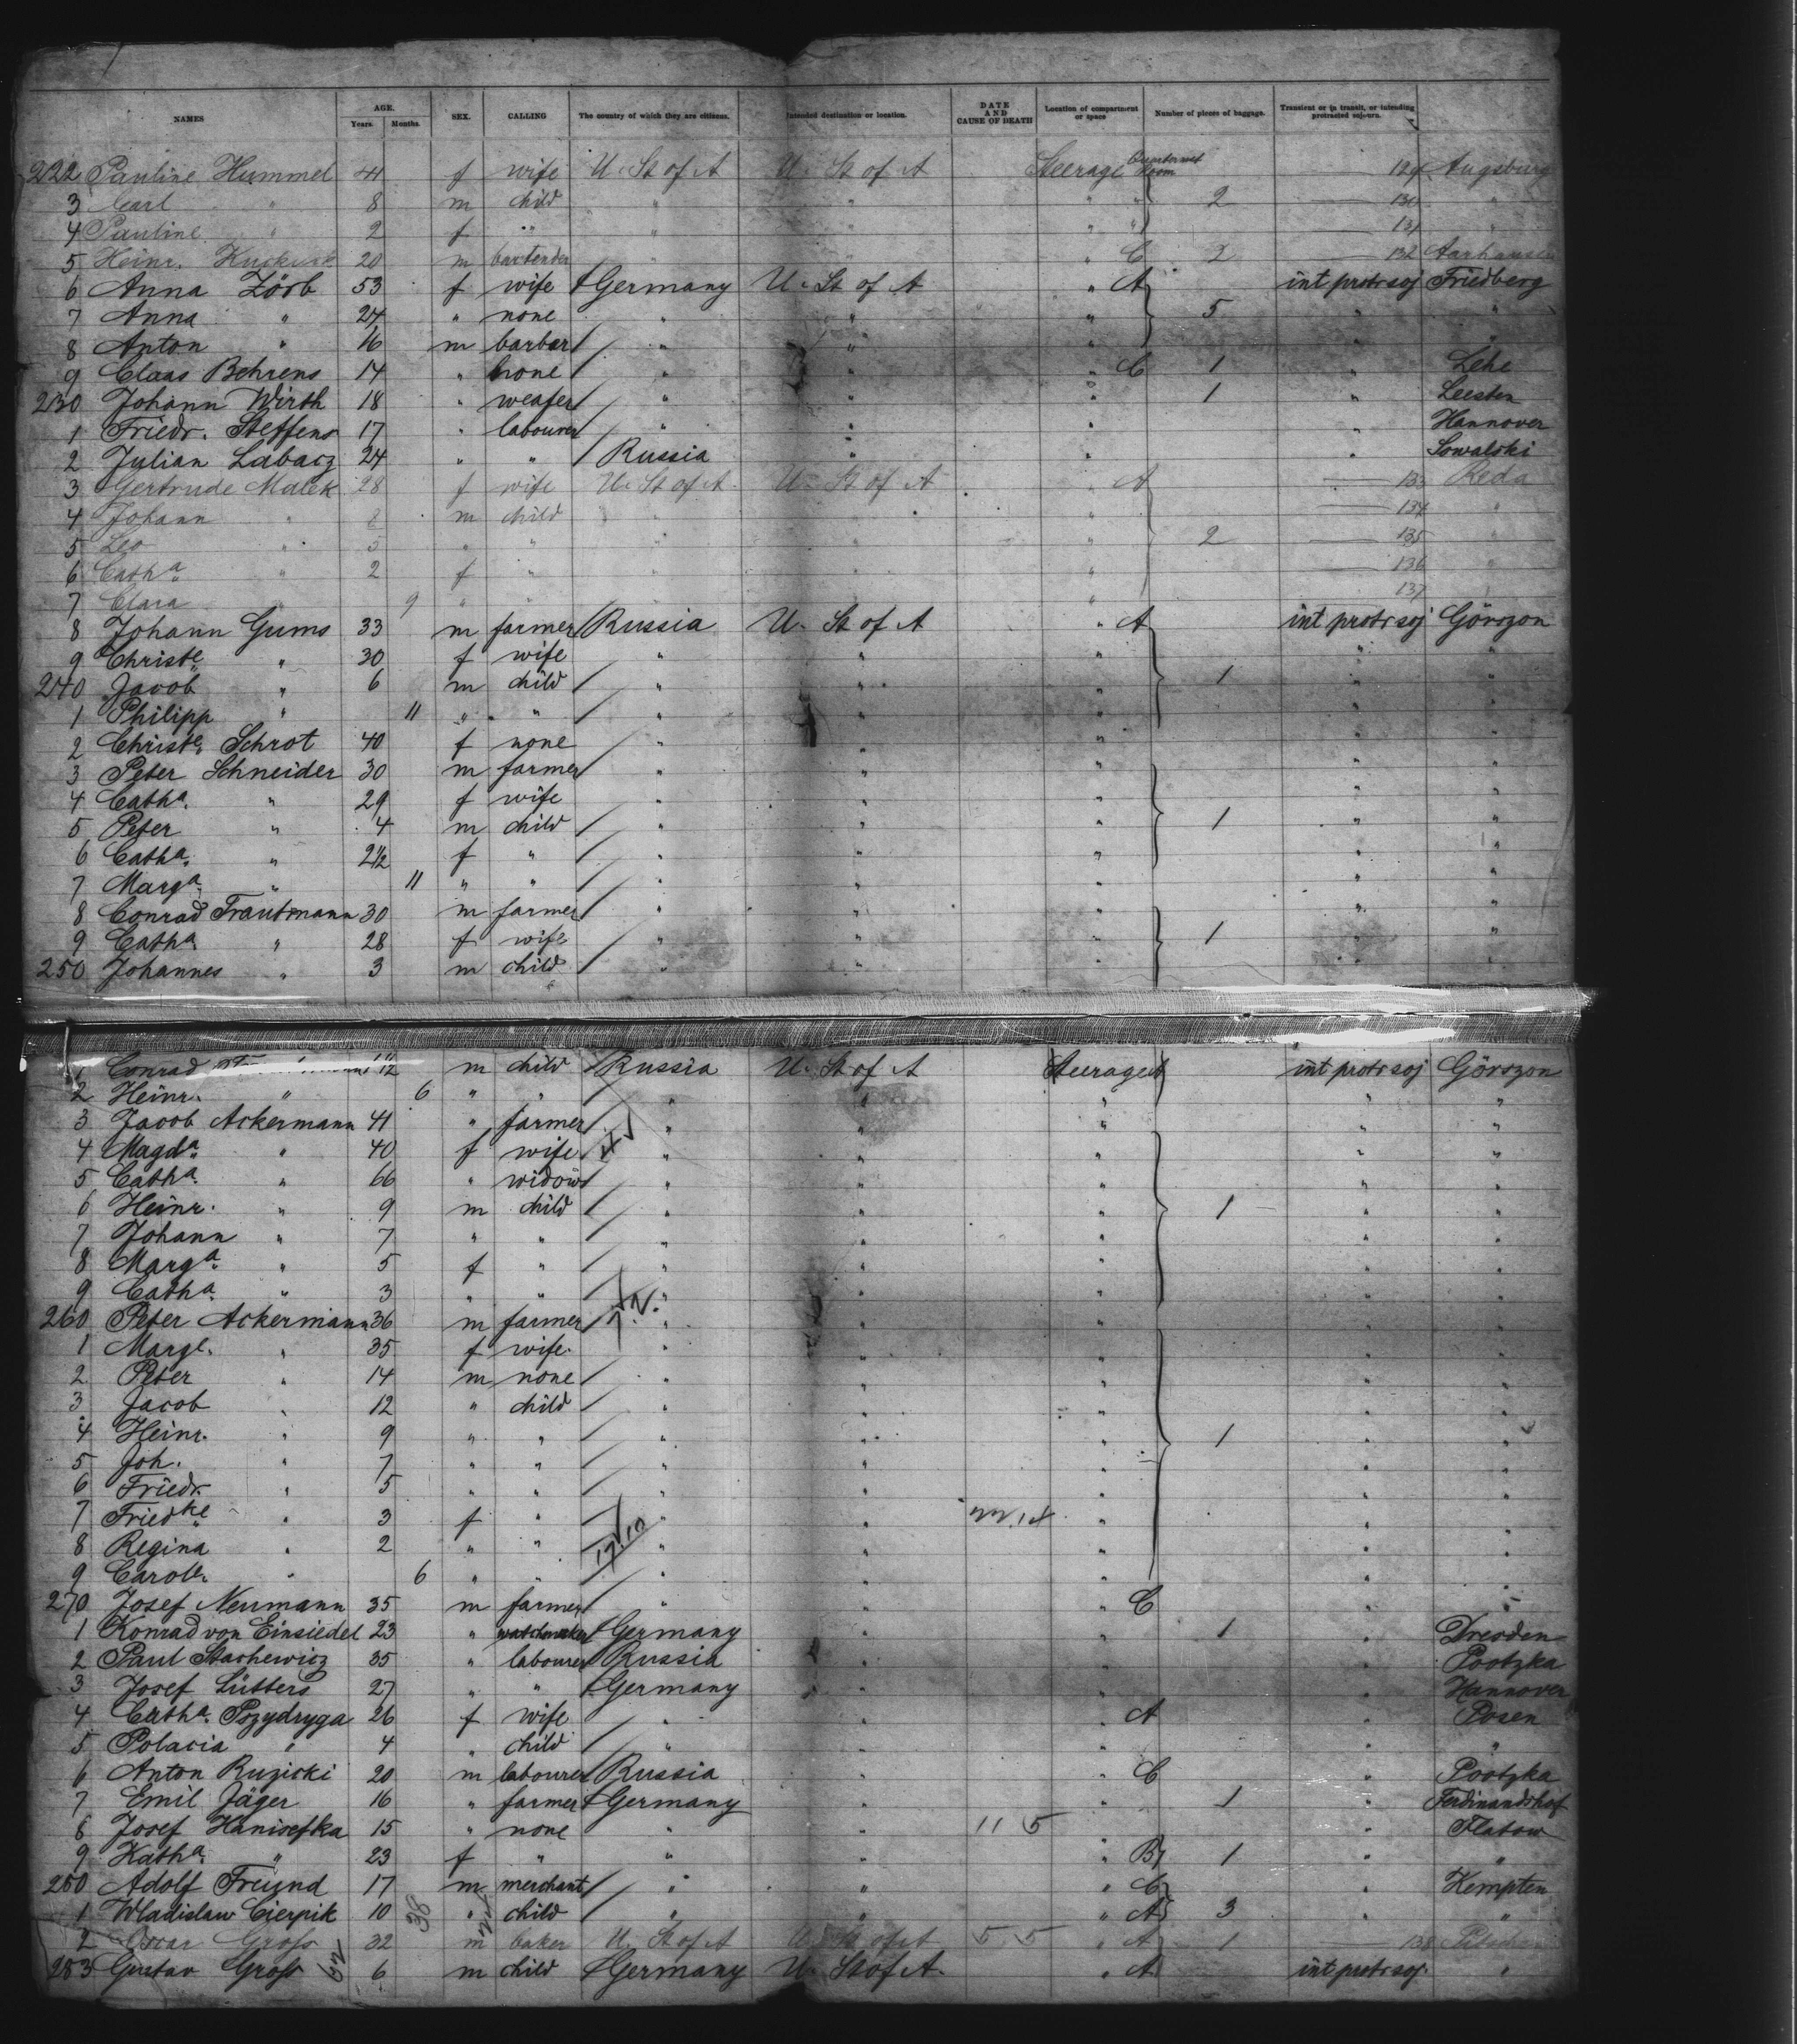 NAMES AGE. Years. Months. SEX. CALLING The country of which they are citizens. Intended destination or location. DATE AND CAUSE OF DEATH Location of compartment or space Number of pieces of baggage. Transient or in transit, or intending protracted sojourn.
222 Pauline Hummel 44 f wife U. St of A U. St of A Steerage Room Augsburg
3 Carl " 8 m child " " " " 2 130 "
4 Pauline " 2 f " " " " " 131 "
5 Heinr. 20 m bartender " " " C 2 132
6 Anna Zörb 53 f wife Germany U. St of A " A int protr soj Friedberg
7 Anna " 24 " none " " " 5 " "
8 Anton " 16 m barber " " " " "
9 Claas Behrens 14 " none " " " C 1 " Lehe
230 Johann Wirth 18 " weafer " " " 1 " Leesten
1 Friedr. Steffens 17 " labourer " " " " Hannover
2 Julian Labacz 24 " " Russia " " " Sowalski
3 Gertrude Malek 28 f wife U. St of A. U. St of A " A Reda
4 Johann " 8 m child " " " 134 "
5 Leo " 5 " " " " " 2 135 "
6 Cath.a " 2 f " " " " 136 "
7 Clara " 9 " " " " " 137 "
8 Johann Gums 33 m farmer Russia U. St of A " A int protr soj Görszon
9 Christe " 30 f wife " " " " "
240 Jacob " 6 m child " " " 1 " "
1 Philipp " 11 " " " " " " "
2 Christe. Schrot 40 f none " " " " "
3 Peter Schneider 30 m farmer " " " " "
4 Catha. " 29 f wife " " " " "
5 Peter " 4 m child " " " 1 " "
6 Catha. " 2½ f " " " " " "
7 Marga. " 11 " " " " " " "
8 Conrad Trautmann 30 m farmer " " " " "
9 Catha. " 28 f wife " " " 1 " "
250 Johannes " 3 m child " " " " "
1 Conrad 1½ m child Russia U. St of A Steerage A int protr soj Görszon
2 Heinr. " 6 " " " " " " "
3 Jacob Ackermann 41 " farmer " " " " "
4 Magda. " 40 f wife " " " " "
5 Catha. " 66 " widow " " " " "
6 Heinr. " 9 m child " " " 1 " "
7 Johann " 7 " " " " " " "
8 Marga. " 5 f " " " " " "
9 Catha. " 3 " " " " " " "
260 Peter Ackermann 36 m farmer " " " " "
1 Margt. " 35 f wife. " " " " "
2 Peter " 14 m none " " " " "
3 Jacob " 12 " child " " " " "
4 Heinr. " 9 " " " " " 1 " "
5 Joh. " 7 " " " " " " "
6 Friedr. " 5 " " " " " " "
7 Friedke " 3 f " " " " " "
8 Regina " 2 " " 17/10 " " " " "
9 Carole. " 6 " " " " " " "
270 Josef Neumann 35 m farmer " " " C " "
1 Konrad von Einsiedel 23 " watchmaker Germany " " 1 " Dresden
2 Paul Stachewicz 35 " labourer Russia " " " Pootzka
3 Josef Lütters 27 " " Germany " " " Hannover
4 Catha. Pszydryga 26 f wife " " " A " Posen
5 Polacia " 4 " child " " " " "
6 Anton Ruzicki 20 m labourer Russia " " C " Pootzka
7 Emil Jäger 16 " farmer Germany " " 1 " Ferdinandshof
8 Josef Hanisefka 15 " none " " 11 5 " " Flatow
9 Katha. " 23 f " " " " B 1 " "
280 Adolf Freund 17 m merchant " " " C " Kempten
1 Wladislaw Cierpik 10 " child " " " A 3 " "
2 Oscar Gross 32 m baker U. St of A U. St of A 5 5 " A 1 138
283 Gustav Gross 6 m child Germany U. St of A. " A int protr soj. "
38